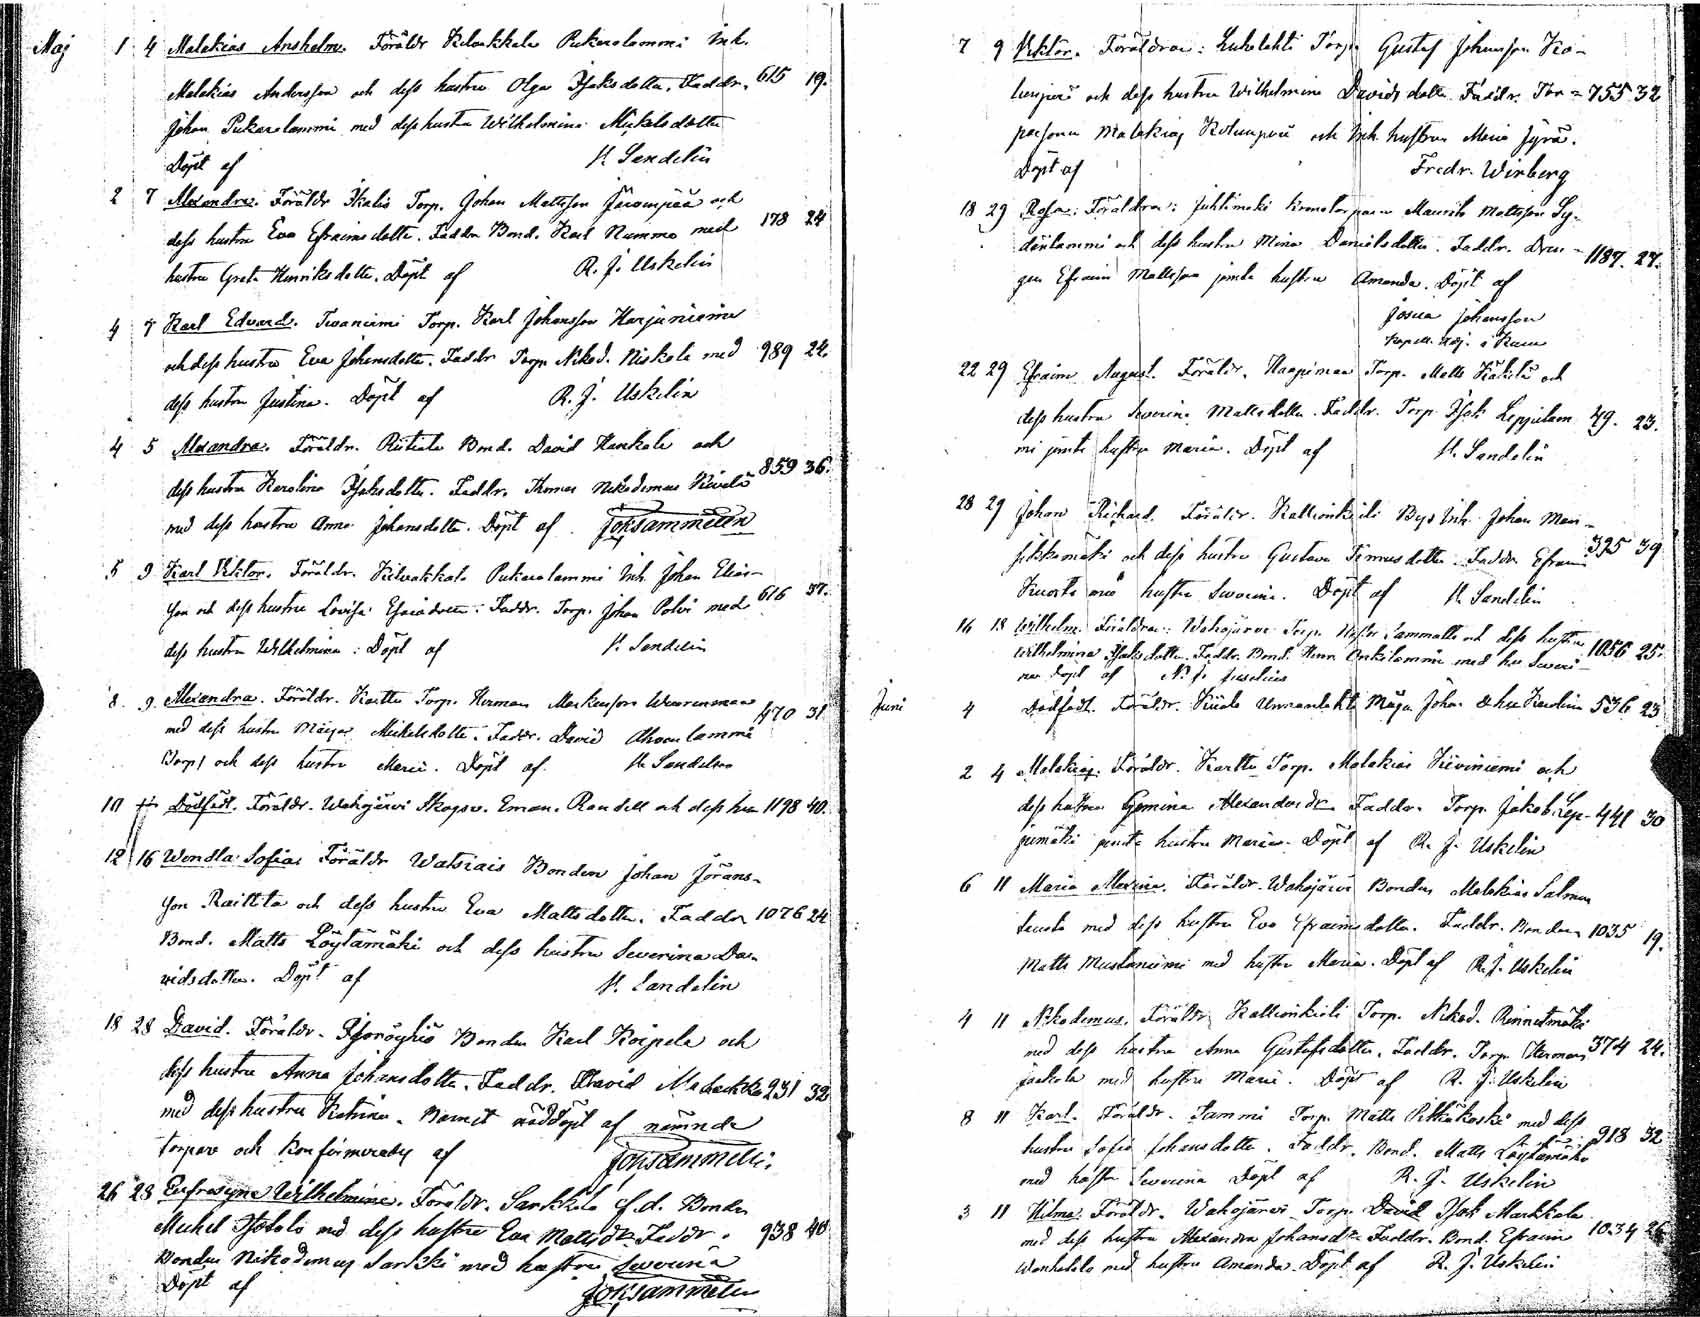 Maj 1 4 Malakias Anshelm. Föräldr Kilvakkala Pukaralammi Inh.
Malakias Andersson och dess hustru Olga Isaksdotter. Faddr. 615 19.
Johan Pukaralammi med dess hustru Wilhelmina Mickelsdotter
Döpt af H. Sandelin
2 7 Alexandra. Föräldr Ikalis Torp. Johan Mattsson och
dess hustru Eva Efraimsdotter. Faddr Bond. Karl Nummo med 178 24
hustru Greta Henriksdotter. Döpt af R. J. Uskelin
4 5 Karl Edvard. Torp. Karl Johansson Harjuniemi
och dess hustru Eva Johansdotter. Faddr Torp. Nikod. Niskala med 989 24.
dess hustru Justina. Döpt af R. J. Uskelin
4 5 Alexandra. Föräldr. Riitiala Bond. David Hankala och
dess hustru Karolina Isaksdotter. Faddr. Thomas Nikodemus Kivelä 859 36.
med dess hustru Anna Johansdotter. Döpt af Joh Sammelin
5 9 Karl Viktor. Föräldr. Kilvakkala Pukaralammi Inh Johan Elias-
son och dess hustru Lovisa Faddr. Torp. Johan Polvi med 616 37.
dess hustru Wilhelmina. Döpt af H. Sandelin
8. 9. Alexandra. Föräldr. Kartti Torp. Herman
med dess hustru Maija Mickelsdotter. Faddr. David Ahvenlammi 470 31
Torp. och dess hustru Maria. Döpt af H. Sandelin
10 Dödfödt. Föräldr. Wahojärvi Skogsv. Eman. Randell och dess hu 1198 40.
12 16 Wendla Sofia. Föräldr Watsiais Bonden Johan Jörans-
son Raittita och dess hustru Eva Mattsdotter. Faddr 1076 24
Bond. Matts Löytämäki och dess hustru Severina Da-
vidsdotter. Döpt af H. Sandelin
18 28 David. Föräldr. Bonden Karl Koipela och
dess hustru Anna Johansdotter. Faddr. David 931 32
med dess hustru Katrina. Barnet nöddöpt af nämnde
torpare och konfirmerady af Joh Sammelin
26 28 Eufrosyne Wilhelmina. Föräldr. Sarkkila f.d. Bonden
Michel med dess hustru Eva Mattsdr. Faddr. 938 40
Bonden Nikodemus Sarkki med hustru Severina
Döpt af Joh Sammelin
7 9 Viktor. Föräldrar: Luhalahti Torp. Gustaf Johansson Ko-
lusperä och dess hustru Wilhelmina Davidsdotter. Faddr. Tor- 755 32
paren Malakias Koluuperä och Inh. hustrun Maria Jyrä.
Döpt af Fredr. Winberg
18 29 Rosa. Föräldrar: Juhtimäki kronotorparen Maurits Mattsson Sy-
dänlammi och dess hustru Mina Danielsdotter. Faddr. Dren- 1187. 27.
gen Efraim Mattsson jemte hustru Amanda. Döpt af
Josua Johansson
Kapell. Adj. i
22 29 Efraim August. Föräldr. Haapimaa Torp. Matts Käkelä och
dess hustru Severina Mattsdotter. Faddr. Torp. Isak Leppulam 49. 23.
mi jemte hustru Maria. Döpt af H. Sandelin
28 29 Johan Richard. Föräldr. Kallionkieli Bys Inh. Johan Man-
sikkamäki och dess hustru Gustava Faddr Efraim 395 39
med hustru Severina. Döpt af H. Sandelin
16 18 Wilhelm. Föräldrar: Wahojärvi Torp. Sammatti och dess hustru
Wilhelmina Isaksdotter. Faddr. Bond. Henr. Onkilammi med hu Severi- 1056 25.
na Döpt af N. J. Juselius
Juni 4 Dödfödt. Föräldr. Kiiala Mågen Johan & hu Karolina 536 23
2 4 Malakias. Föräldr. Kartti Torp. Malakias Kiviniemi och
dess hustru Alexandersdr. Faddr. Torp. Jakob Lep- 441 30
pimäki jemte hustru Maria. Döpt af R. J. Uskelin
6 11 Maria Alexina. Föräldr. Wahojärvi Bonden Malakias Salmen
tausta med dess hustru Eva Efraimsdotter. Faddr. Bonden 1035 19.
Matts Mustaniemi med hustru Maria. Döpt af R. J. Uskelin
4 11 Nikodemus. Föräldr. Kallionkieli Torp. Nikod. Rinnetmäki
med dess hustru Anna Gustafsdotter. Faddr. Torp Herman 374 24.
Jaakola med hustru Maria. Döpt af R. J. Uskelin
8 11 Karl. Föräldr. Sammi Torp. Matts Pitkäkoski med dess
hustru Sofia Johansdotter. Faddr. Bond. Matts Löytämäki 918 32
med hustru Severina Döpt af R. J. Uskelin
3 11 Hilma. Föräldr. Wahojärvi Torp. David Isak Markkola
med dess hustru Alexandra Johansdr. Faddr. Bond. Efraim 1034 26
Wanhatalo med hustru Amanda. Döpt af R. J. Uskelin